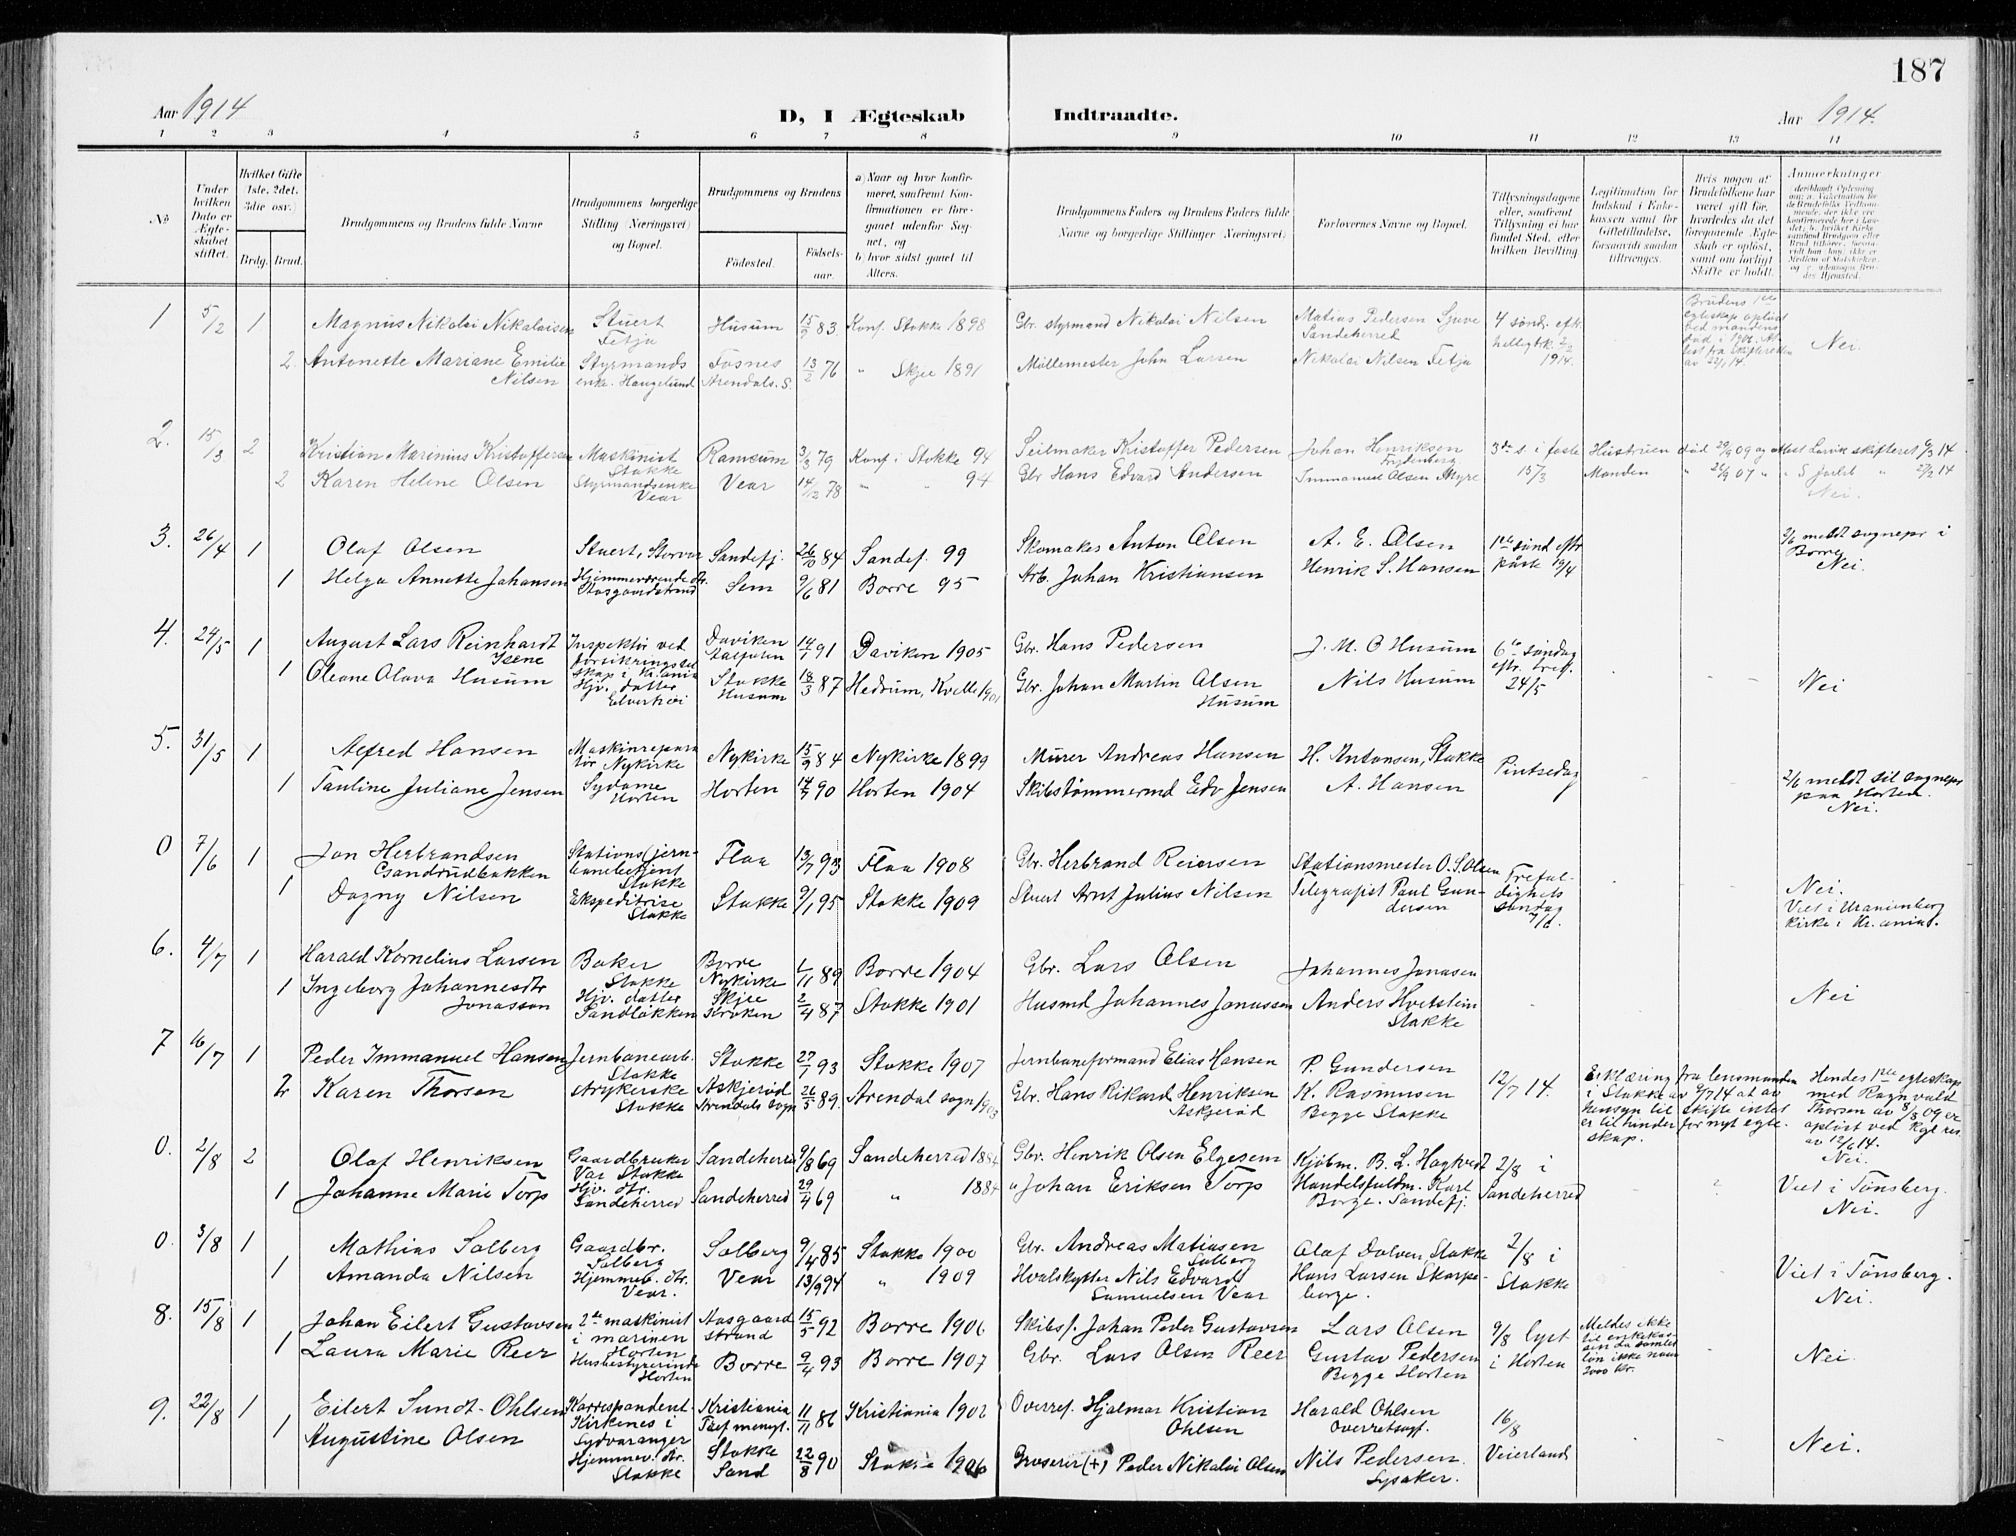 187
Aar 1914 D, I Ægteskab Indtraadte. Aar 1914.
1 2 3 4 5 6 7 8 9 10 11 12 13 14
No
Under hvilken Dato er Ægteskabet stiftet.
Hvilket Gifte 1ste, 2det, 3die osv.)
Brdg. Brud.
Brudgommens og Brudens fulde Navne
Brudgommens borgerlige Stilling (Næringsvei) og Bopæl.
Brudgommens og Brudens
Fødested. Fødselsaar.
a) Naar og hvor konfirmeret, saafremt Konfirmationen er foregaaet udenfor Sognet, og
b) hvor sidst gaaet til Alters.
Brudgommens Faders og Brudens Faders fulde Navne og borgerlige Stillinger (Næringsvei)
Forlovernes Navne og Bopæl.
Tillysningsdagene eller, saafremt Tillysning ei har fundet Sted, efter hvilken Bevilling
Legitimation for Indskud i Enkekassen samt for Giftetilladelse, forsaavidt saadan tiltrænges.
Hvis nogen af Brudefolkene har været gift før, hvorledes da det foregaaende Ægteskab er opløst, samt om lovligt Skifte er holdt.
Anmærkninger
1 5/2 1 Magnus Nikolai Nikolaisen Stuert Fetja Husum 15/2 83 Konf. Stokke 1898 Gbr. styrmand Nikolai Nilsen Matias Pedersen Gjuve Sandeherred 4 sönd. eftr. helligtrk. 2/2 1914.
Brudens 1ste egteskap opløst ved mandens død i 1901. Attest fra skifteretten av 22/1 14.
Nei.
2. Antonette Mariane Emilie Nilsen Styrmands enke. Haugelund Fosnes Arendals. S. 13/2 76 " Skjee 1891 Müllemester John Larsen Nikolai Nilsen Fetja
2. 15/3 2 Kristian Marinius Kristoffersen Maskinist Stokke Ramsum 3/3 79 Konf i Stokke 94 Seilmaker Kristoffer Pedersen Johan Henriksen Frydenberg 3de s. i faste 15/3 Hustruen död 29/9 09 og Attest Larvik skifteret 6/3 14
2 Karen Helene Olsen Styrmandsenke Vear Vear 14/12 78 " " 94 Gbr Hans Edvard Andersen Immanuel Olsen Myre Manden " 22/9 07 " " S Jarlsb " 27/2 14
Nei.
3. 26/4 1 Olaf Olsen Stuert, Storvar Sandefj. 26/10 84 Sandef. 99 Skomaker Anton Olsen A. E. Olsen 1ste sønd eftr påske 19/4 2/6 meldt sognepr i Borre
Nei.
1 Helga Annette Johansen Hjemmeværende dtr. Aasgaardstrand Sem 9/6 81 Borre 95 Arb. Johan Kristiansen Henrik S. Hansen
4. 24/5 1 August Lars Reinhardt Isene Inspektør ved forsikringsselskap i Kr.ania Daviken 14/1 91 Daviken 1905 Gbr. Hans Pedersen J. M. O Husum 6te søndag eftr. 24/5
1 Oleane Olava Husum Hjv. datter Elverhøi Stokke Husum 18/3 87 Hedrum, Kvelle 1901 Gbr. Johan Martin Olsen Husum Nils Husum Nei
5. 31/5 1 Alfred Hansen Maskinreparatør Nykirke Nykirke 15/9 84 Nykirke 1899 Murer Andreas Hansen H. Antonsen, Stokke Pintsedag
1 Pauline Juliane Jensen Sydame Horten Horten 14/7 90 Horten 1904 Skibstømmermd Edv Jensen A. Hansen 2/6 meldt til sognepr paa Horten.
Nei.
0 7/6 1 Jon Herbrandsen Gsandrudbakken Stations(jernbanebetjent Stokke Flaa 13/7 93 Flaa 1908 Gbr. Herbrand Reiersen Stationsmester O. S. Olsen Trefoldighets søndag 7/6.
1 Dagny Nilsen Ekspeditrise Stokke Stokke 9/1 95 Stokke 1909 Stuert Arnt Julius Nilsen Telegrafist Paul Gundersen Nei.
Viet i Uranienborg kirke i Kr.ania.
6. 4/7 1 Harald Kornelius Larsen Baker Stokke Borre Nykirke 1/11 89 Borre 1904 Gbr. Lars Olsen Johannes Jonasen
1 Ingeborg Johannesdtr Jonasson Hjv. datter Sandløkken Skjee Kroken 2/4 87 Stokke 1901 Husmd Johannes Jonassen Anders Hvetstein Stokke Nei
7 16/7 1 Peder Immanuel Hansen Jernbanearb. Stokke Stokke 27/1 93 Stokke 1907 Jernbaneformand Elias Hansen P. Gundersen 12/7 14.
2 Karen Thorsen Strykerske Stokke Askjerød Arendals sogn 26/5 89. Arendal sogn 1903 Gbr. Hans Rikard Henriksen Askjerød K. Rasmusen Begge Stokke
Erklæring fra lensmanden i Stokke av 9/7 14 at av hensyn til skifte intet er til hinder for nyt egteskap.
Hendes 1ste egteskap med Ragnvald Thorsen av 8/8 09 er opløst ved kgl. res av 12/6 14.
Nei.
0. 2/8 2 Olaf Henriksen Gaardbruker Vær Stokke Sandeherred 9/8 69 Sandeherred 1884 Gbr. Henrik Olsen Elgesem Kjøbm. B. L. Hagtvedt 2/8 i Sandeherred
1 Johanne Marie Torp Hjv. dtr. Sandeherred Sandeherred 29/4 69 " 1884 " Johan Eriksen Torp Handelsfuldm. Karl Borge. Sandefj. Viet i Tønsberg.
Nei.
0. 3/8 1 Mathias Solberg Gaardbr. Solberg Solberg 9/4 85 Stokke 1900 Gbr. Andreas Matiasen Solberg Olaf Dalven Stokke 2/8 i Stokke
1 Amanda Nilsen Hjemmev. dtr. Vear. Vear 13/9 94 " 1909 Hvalskytter Nils Edvard Samuelsen Vear Hans Larsen Skorpeborge. Viet i Tønsberg.
Nei.
8. 15/8 1 Johan Eilert Gustavsen 2de maskinist i marinen Horten Aasgaardstrand 15/5 92 Borre 1906 Skibsf. Johan Peder Gustavsen Lars Olsen 9/8 lyst i Horten
Meldes ikke til enkekassen da samlet løn ikke naar 2000 kr.
1 Laura Marie Reer Husbestyrerinde Horten Borre 9/4 93 Borre 1907 Gbr. Lars Olsen Reer Gustav Pedersen Begge Horten Nei.
9. 22/8 1 Eilert Sundt-Ohlsen Korrespondent Kirkenes i Sydvaranger Kristiania 11/11 86 Kristiania 1902 Overretsf. Hjalmar Kristian Ohlsen Harald Ohlsen Overretssagf. 16/8 Veierland
1 Augustine Olsen Hjemmev. dtr. Stokke Stokke Sand 22/8 90 Stokke 1906 Groserer (+) Peder Nikolai Olsen Nils Pedersen Lysaker. Nei.